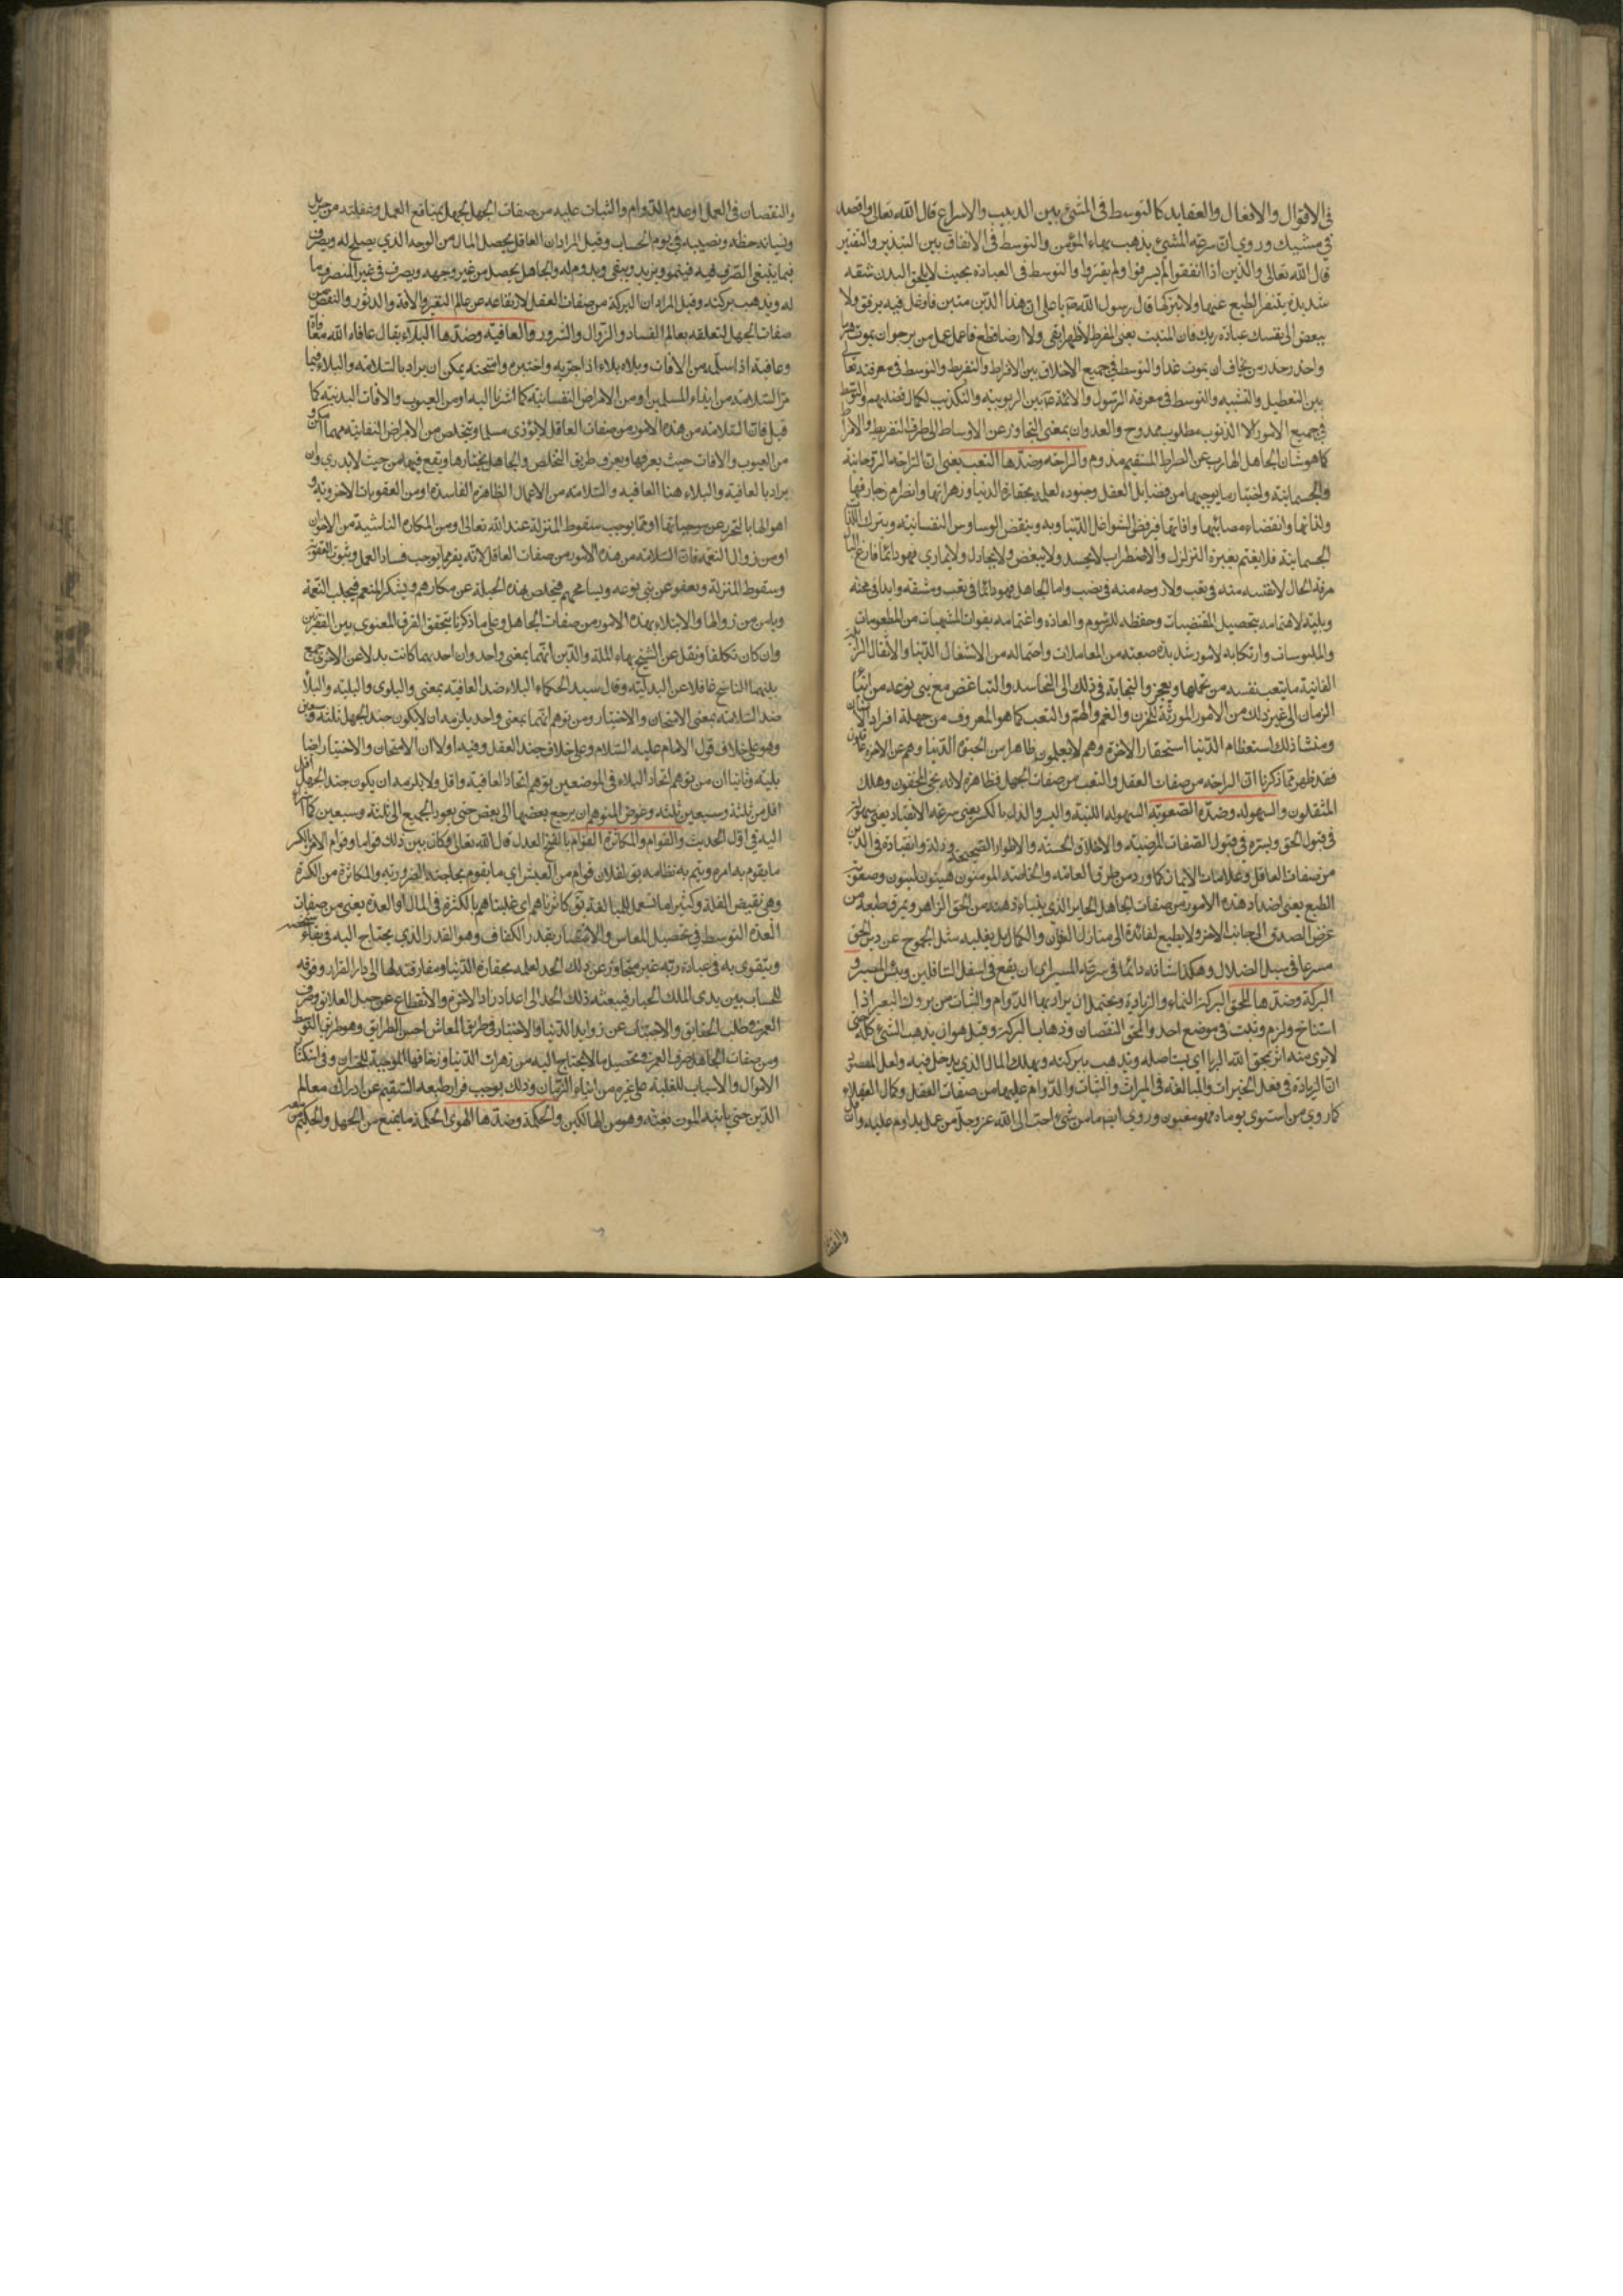 في الاقوال والافعال والعقايد كالتوسط في المشي بين الدبيب والاسراع قال الله تعالى واقصد
في مشيك وروي ان سرعة المشي يذهب ببهاء المؤمن والتوسط في الانفاق بين التبذير والتقتير
قال الله تعالى والذين اذا انفقوا لم يسرفوا ولم يقتروا والتوسط في العبادة بحيث لا يلحق البدن مشقة
شديدة يتنفر الطبع عنها ولا يتركها قال رسول الله يا علي ان هذا الدين متين فاوغل فيه برفق ولا
تبغض الى نفسك عبادة ربك فان المنبت يعني المفرط لا ظهرا ابقى ولا ارضا قطع فاعمل عمل من يرجو ان يموت هرما
واحذر حذر من يخاف ان يموت غدا والتوسط في جميع الاخلاق بين الافراط والتفريط والتوسط في معرفته تعالى
بين التعطيل والتشبيه والتوسط في معرفة الرسول والائمة بين الربوبية والتكذيب
في جميع الامور الا الذنوب مطلوب ممدوح والعدوان بمعنى التجاوز عن الاوساط الى طرف التفريط والافراط
كما هو شان الجاهل الهارب عن الصراط المستقيم مذموم والراحة وضدها التعب يعني ان الراحة الروحانية
والجسمانية واختيار ما يوجبهما من فضايل العقل وجنوده لعلمه بحقارة الدنيا وزهراتها وانصرام زخارفها
ولذاتها وانقضاء مصائبها وافاتها فيرفض الشواغل الدنياوية وينقض الوساوس النفسانية ويترك اللذات
الجسمانية فلا يغتم بغيره التزلزل والاضطراب لا يحسد ولا يبغض ولا يجادل ولا يماري فهو دائما فارغ البال
مرفه الحال لا نفسه منه في تعب ولا روحه منه في نصب واما الجاهل فهو دائما في تعب ومشقة وابدا في محنة
وبلية لاهتمامه بتحصيل المقتضيات وحفظه للرسوم والعادة واغتمامه بفوات المشتهيات من المطعومات
والملبوسات وارتكابه لامور شديدة صعبة من المعاملات واحتماله من الاشغال الدنيا والاثقال
الفانية ما يتعب نفسه من تحملها ويعجز والنهاية في ذلك الى التحاسد والتباغض مع بني نوعه من ابناء
الزمان الى غير ذلك من الامور المورثة للحزن والغم والهم والتعب كما هو المعروف من جهلة افراد الانسان
ومنشا ذلك استعظام الدنيا واستحقار الاخرة وهم لا يعلمون ظاهرا من الحيوة الدنيا وهم عن الاخرة غافلون
فقد ظهر مما ذكرنا ان الراحة من صفات العقل والتعب من صفات الجهل فظاهره لانه نجى المخفون وهلك
المثقلون والسهولة وضده الصعوبة السهولة اللينة واليسر والذل بالكسر يعني سرعة الانقياد يعني سهولته
في قبول الحق ويسره في قبول الصفات المرضية والاخلاق الحسنة والاطوار الصحيحة وذلة وانقياده في الدين
من صفات العاقل وعلامات الايمان كما ورد من طرق العامة والخاصة المؤمنون هينون لينون وصعوبة
الطبع يعني اضداد هذه الامور من صفات الجاهل
عرض الصدق الى جانب الاخرة ولا يطيع لقائده الى منازل العرفان والكمال بل يغلبه مثل الجموح عن دين الحق
مسرعا في سبيل الضلال وهكذا شانه دائما في سرعة المسير الى ان يقع في اسفل السافلين وبئس المسير و
البركة وضدها المحق البركة النماء والزيادة ويحتمل ان يراد بها الدوام والثبات من بروك البعير اذا
استناخ ولزم وثبت في موضع احد والمحق النقصان وذهاب البركة وقيل هو ان يذهب الشيء كله حتى
لا يرى منه اثر يمحق الله الربا اي يستاصله ويذهب ببركته ويهلك المال الذي يدخل فيه ولعل المقصود
ان الزيادة في فعل الخيرات والمبالغة في المبرات والثبات والدوام عليهما من صفات العقل وكمال العقلاء
كما روي من استوى يوماه فهو مغبون وروي ايضا ما من شيء احب الى الله عز وجل من عمل يداوم عليه وان قل
والنقص
والنقصان في العمل او عدم الدوام والثبات عليه من صفات الجهل لجهله بمنافع العمل وغفلته
ونسيانه حظه ونصيبه في يوم الحساب وقيل المراد ان العاقل يحصل المال من الوجه الذي يصلح له ويصرف
فيما ينبغي الصرف فيه فينمو ويزيد ويبقى ويدوم له والجاهل يحصل من غير وجهه ويصرف في غير المصرف
له ويذهب بركته وقيل المراد ان البركة من صفات العقل لارتفاعه عن عالم التغير والافة والدثور والنقص من
صفات الجهل لتعلقه بعالم الفساد والزوال والشرور والعافية وضدها البلاء يقال عافاه الله معافاة
وعافية اذا سلمه من الافات وبلاه بلاء اذا جربه واختبره وامتحنه يمكن ان يراد بالسلامة والبلاء فيما
مر السلامة من ايذاء المسلمين او من الامراض النفسانية كما اشرنا اليه او من العيوب والافات البدنية كما
قيل فان السلامة من هذه الامور من صفات العاقل لانه لا يؤذي مسلما ويتخلص من الامراض النفسانية مهما امكن
من العيوب والافات حيث يعرفها ويعرف طريق التخلص والجاهل يختارها ويقع فيها من حيث لا يدري وان
يراد بالعافية والبلاء هنا العافية والسلامة من الاعمال الظاهرة الفاسدة او من العقوبات الاخروية و
اهوالها بالتحرز عن موجباتها او مما يوجب سقوط المنزلة عند الله تعالى او من المكاره الناشية من الاخوان
او من زوال النعمة فان السلامة من هذه الامور من صفات العاقل لانه يفر مما يوجب فساد العمل وثبوت العقوبة
وسقوط المنزلة ويعفو عن بني نوعه ويسامحهم فيخلص بهذه الحيلة عن مكارههم ويشكر المنعم فيجلب النعمة
ويامن من زوالها والابتلاء بهذه الامور من صفات الجاهل وعلى ما ذكرنا يتحقق الفرق المعنوي بين الفقرتين
وان كان تكلفا ونقل عن الشيخ بهاء الملة والدين انهما بمعنى واحد وان احديهما كانت بدلا عن الاخرى جمع
بينهما الناسخ غافلا عن البدلية وقال سيد الحكماء البلاء ضد العافية بمعنى والبلوى والبلية والبلاء
ضد السلامة بمعنى الامتحان والاختبار ومن توهم انهما بمعنى واحد يلزمه ان لا يكون جند الجهل ثلثة وسبعين
وهو على خلاف قول الامام عليه السلام وعلى خلاف جند العقل وفيه اولا ان الامتحان والاختبار ايضا
بلية وثانيا ان من توهم اتحاد البلاء في الموضعين توهم اتحاد العافية واقل ولا يلزمه ان يكون جند الجهل اقل
اقل من ثلثة وسبعين ثلثة وغرض المتوهم ان يرجع بعضها الى بعض حتى يعود الجميع الى ثلثة وسبعين كما اشرنا
اليه في اول الحديث والقوام والمكاثرة القوام بالفتح العدل قال الله تعالى وكان بين ذلك قواما وقوام الامر بالكسر
ما يقوم به امره ويتم به نظامه يق لفلان قوام من العيش اي ما يقوم بحاجته الضرورية والمكاثرة من الكثرة
وهي نقيض القلة وكثيرا ما تستعمل للمبالغة يق كاثرناهم اي غلبناهم بالكثرة في المال او العدة يعني من صفات
العدة التوسط في تحصيل المعاش والاقتصار بقدر الكفاف وهو القدر الذي يحتاج اليه في بقاء
ويتقوى به في عبادة ربه غير متجاوز عن ذلك الحد لعلمه بحقارة الدنيا ومفارقته لها الى دار القرار ووقوفه
للحساب بين يدي الملك الجبار فيبعثه ذلك الحد الى اعداد زاد الاخرة والانقطاع عن حبل العلائق وصرف
العمر في طلب الحقايق والاجتناب عن زوايد الدنيا والاختبار في طريق المعاش احسن الطرايق وهو طريق التوسط
ومن صفات الجاهل صرف العمر في تحصيل ما لا يحتاج اليه من زهرات الدنيا وزخارفها الموجبة للخسران
الاموال والاسباب للغلبة على غيره من ابناء الزمان وذلك يوجب فرار طبعه السقيم عن ادراك معالم
الدين حتى ياتيه الموت بغتة وهو من الهالكين والحكمة وضدها الهوى الحكمة ما يمنع من الجهل والحكيم